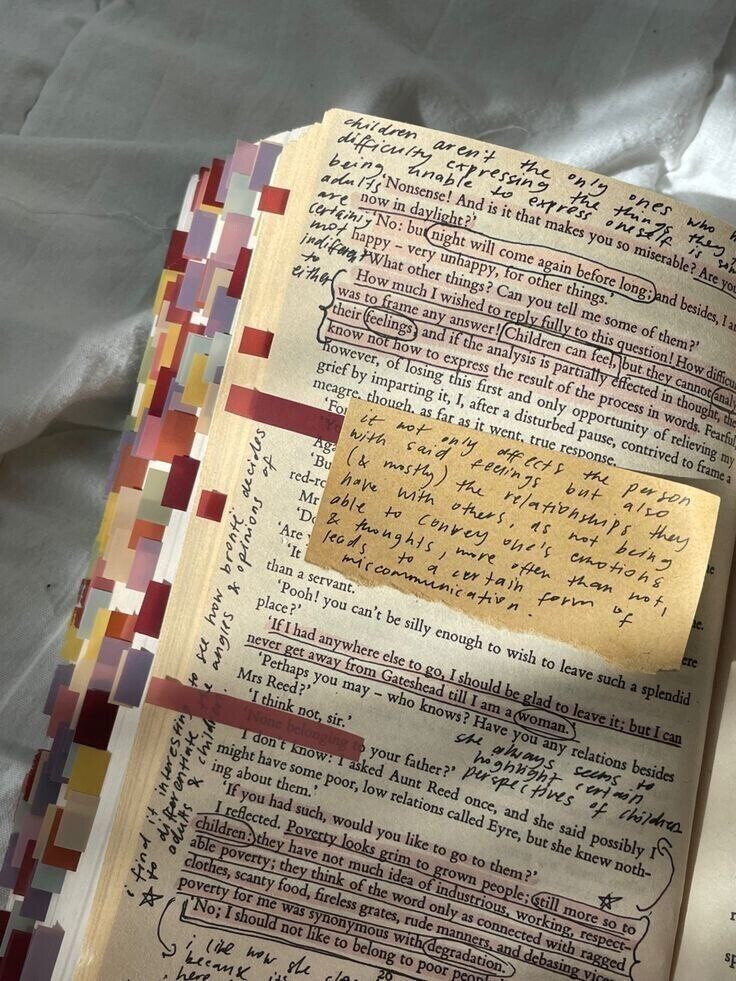 children aren't the only ones who
difficulty expressing the things they
being unable to express oneself is
adults
are
certainly
not
indifferent
to
either
'Nonsense! And is it that makes you so miserable? Are you
now in daylight?'
'No: but night will come again before long; and besides, I am
happy – very unhappy, for other things.'
'What other things? Can you tell me some of them?'
How much I wished to reply fully to this question! How difficult
was to frame any answer! Children can feel, but they cannot
their feelings; and if the analysis is partially effected in thought, the
know not how to express the result of the process in words. Fearful,
however, of losing this first and only opportunity of relieving my
grief by imparting it, I, after a disturbed pause, contrived to frame a
meagre, though, as far as it went, true response.
it not only affects the person
with said feelings but also
(& mostly) the relationships they
have with others, as not being
able to convey one's emotions
& thoughts, more often than not,
leads to a certain form of
miscommunication.
'Fo
Aga
'Bu
red-ro
Mr
'Do
'Are
'It
than a servant.'
'Pooh! you can't be silly enough to wish to leave such a splendid
place?'
'If I had anywhere else to go, I should be glad to leave it; but I can
never get away from Gateshead till I am a woman.'
'Perhaps you may – who knows? Have you any relations besides
Mrs Reed?'
'I think not, sir.'
'None belonging to your father?'
'I don't know: I asked Aunt Reed once, and she said possibly I
might have some poor, low relations called Eyre, but she knew noth-
ing about them.'
she always seems to
highlight certain
perspectives of children
'If you had such, would you like to go to them?'
I reflected. Poverty looks grim to grown people; still more so to
children: they have not much idea of industrious, working, respect-
able poverty; they think of the word only as connected with ragged
clothes, scanty food, fireless grates, rude manners, and debasing vices:
poverty for me was synonymous with degradation.
'No; I should not like to belong to poor people
i find it interesting to see how brontë decides
to differentiate the angles & opinions of
adults & children
i like how she
because
here
20